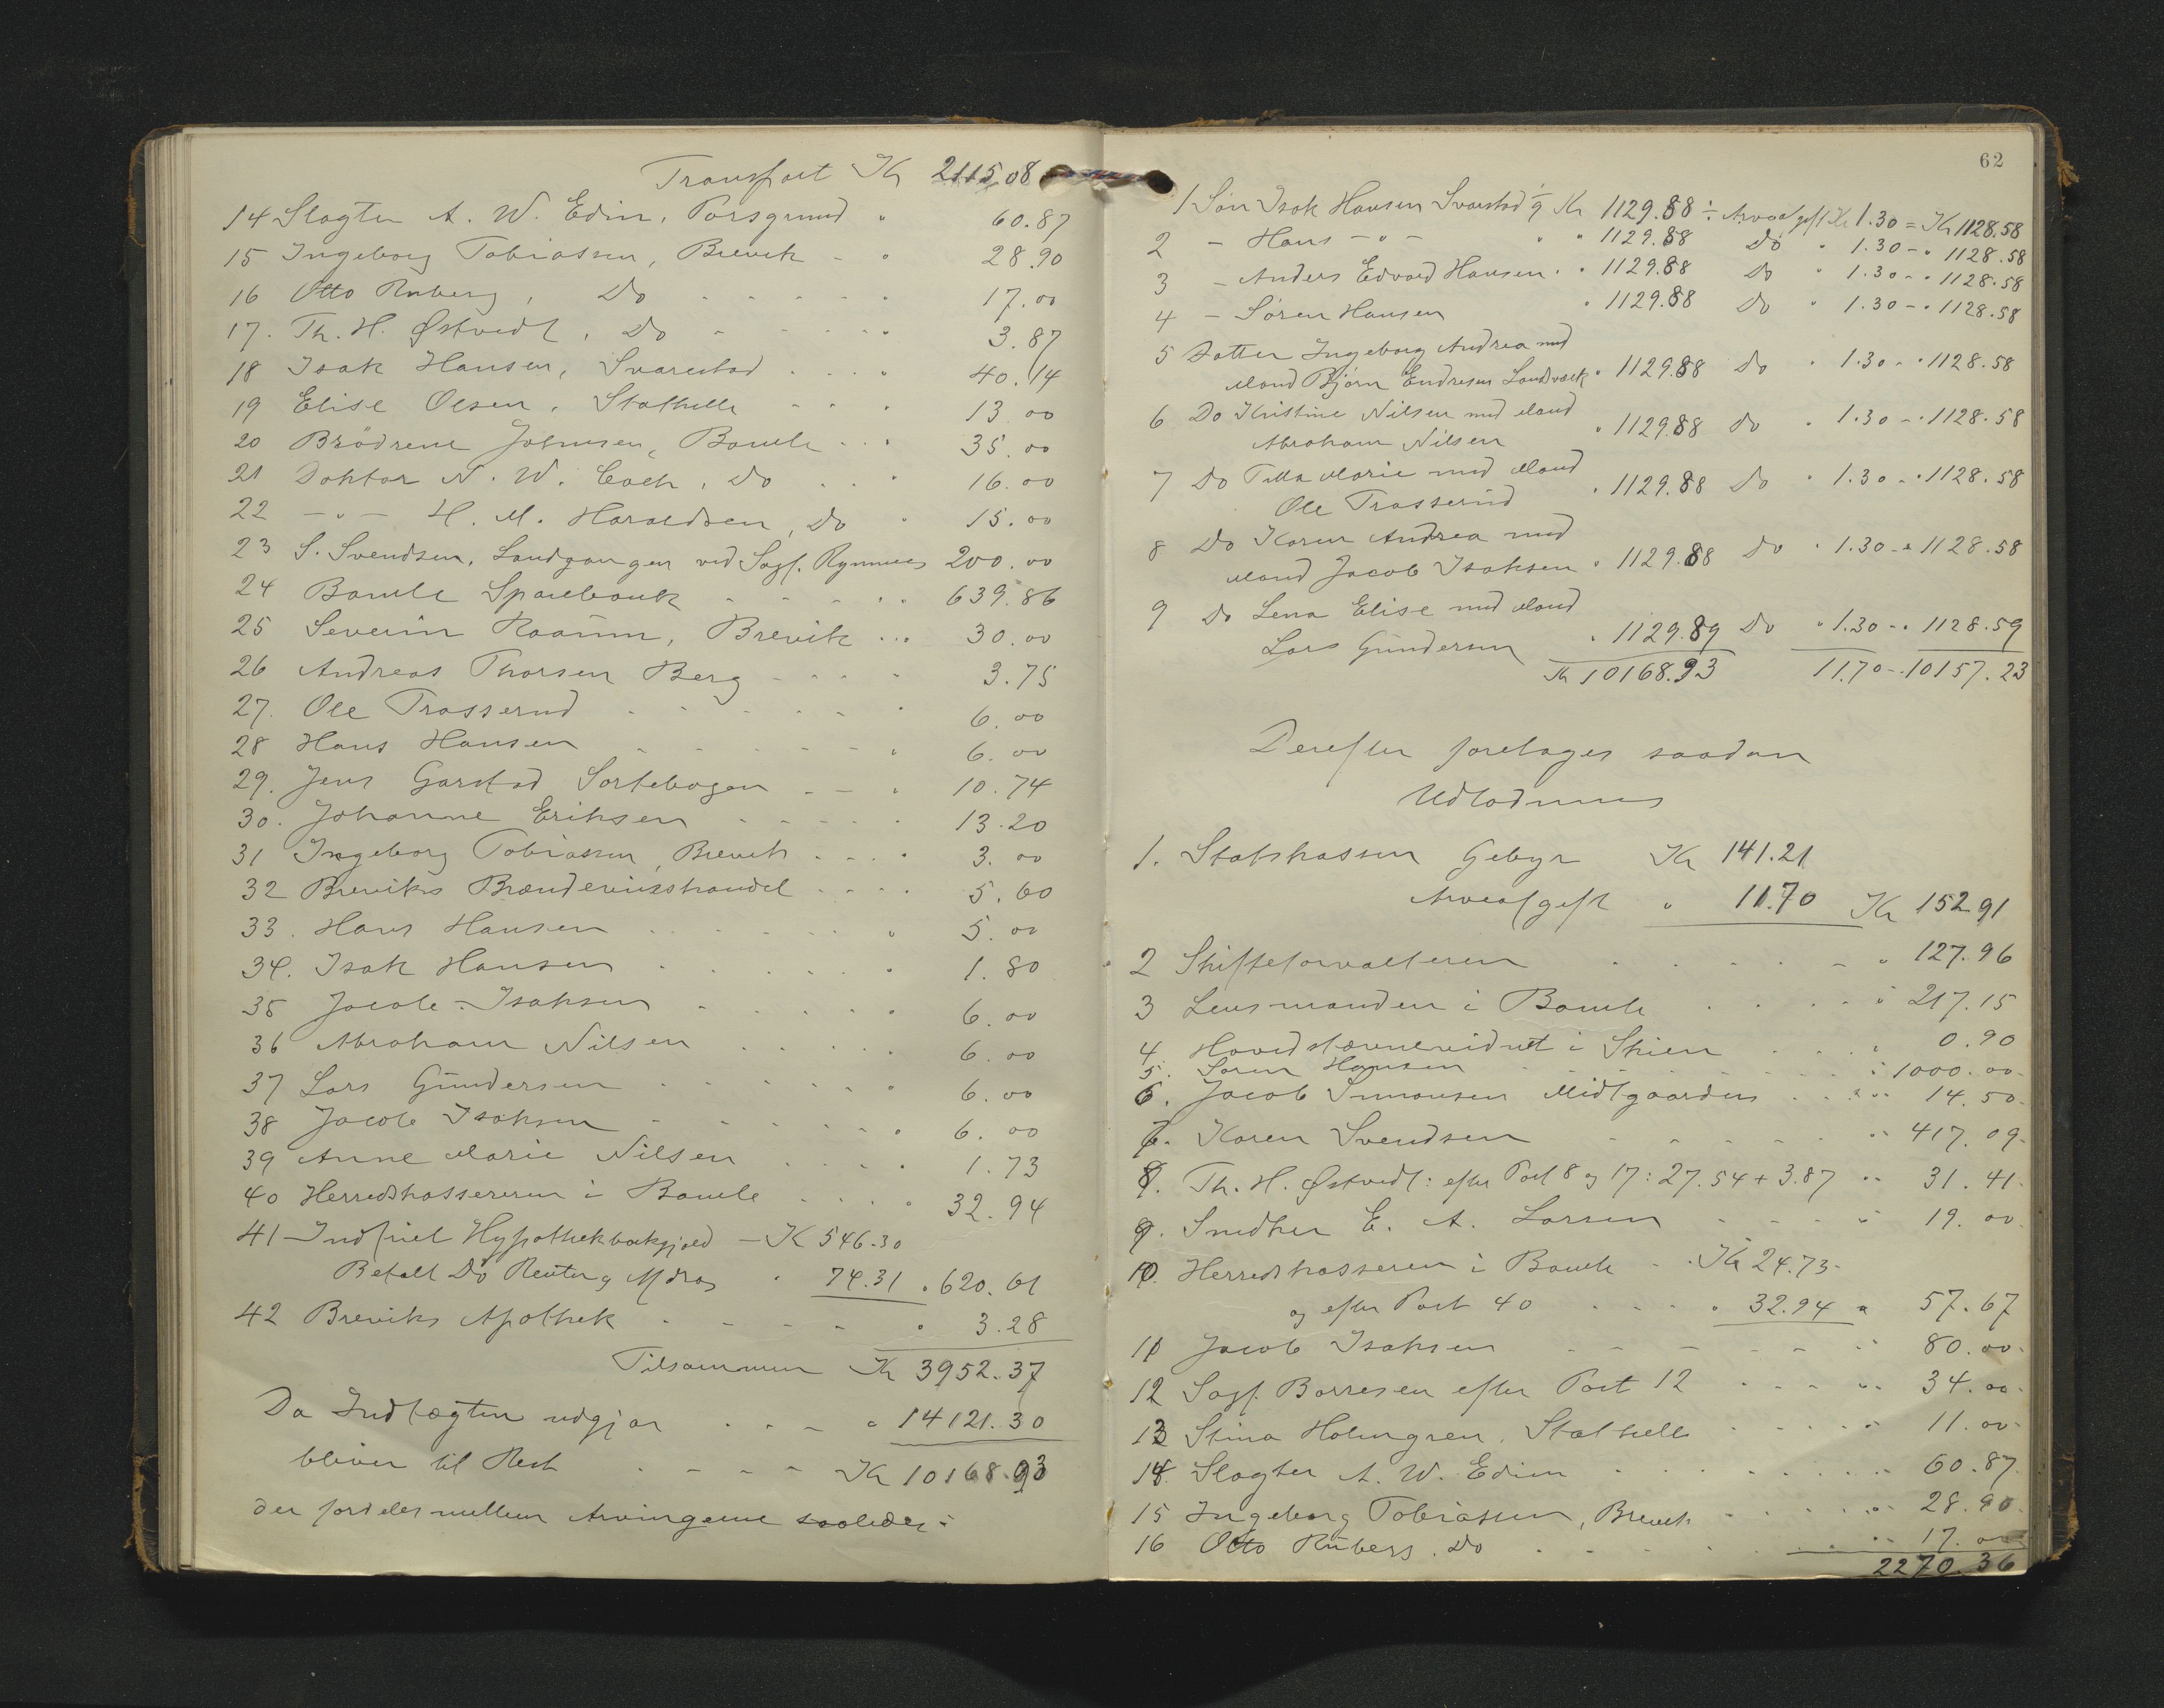 Transport Kr 2115.08
14 Slagter A. W. Edin, Porsgrund " 60.87
15 Ingeborg Tobiassen, Brevik - " 28.90
16 Otto Ruberg, Do - - - - - " 17.00
17. Th. H. Østvedt, Do - - - - - " 3.87
18 Isak Hansen, Svarstad . . . " 40.14
19 Elise Olsen, Stathelle - - " 13.00
20 Brödrene Johnsen, Bamle . . " 35.00
21 Doktor N. W. Coch, Do . . " 16.00
22 - " - H. M. Haraldsen, Do " 15.00
23 S. Svendsen, Landgangen ved Sagf. 200.00
24 Bamle Sparebank - - - - " 639.86
25 Severin Raaum, Brevik ... 30.00
26 Andreas Thorsen Berg - - - - 3.75
27. Ole Trosserud - - - - - " 6.00
28 Hans Hansen - - - - - " 6.00
29. Jens Garstad Sortebogen - - " 10.74
30. Johanne Eriksen - - - - - 13.20
31 Ingeborg Tobiassen, Brevik . . . " 3.00
32 Breviks Brændevinshandel . . . . 5.60
33. Hans Hansen . . . . . . " 5.00
34. Isak Hansen . . . . . . " 1.80
35 Jacob Isaksen - . . . . . " 6.00
36 Abraham Nilsen . . . . . 6.00
37 Lars Gundersen . . . . . " 6.00
38 Jacob Isaksen - - - - - " 6.00
39 Anne Marie Nilsen . . . . 1.73
40 Herredskassereren i Bamle . . . " 32.94
41 - Indfriet Hypothekbankgjæld - K 546.30
Betalt Do Renter og " 74.31 " 620.61
42 Breviks Apothek - - - - " 3.28
Tilsammen Kr 3952.37
Da Indtægten udgjør . . - " 14121.30
bliver til Rest . - - - Kr 10168.93
der fordeles mellem Arvingerne saaledes:
62
1 Søn Isak Hansen Svarstad 1/9 Kr 1129.88 ÷ Arveafgift Kr 1.30 = Kr 1128.58
2 - Hans - " - " " 1129.88 Do " 1.30 - " 1128.58
3 - Anders Edvard Hansen " " 1129.88 Do " 1.30 - " 1128.58
4 - Søren Hansen " 1129.88 Do " 1.30 - " 1128.58
5 Datter Ingeborg Andrea med
Mand Bjørn Endresen Landvæk " 1129.88 Do " 1.30 - " 1128.58
6 Do Kristine Nilsen med Mand
Abraham Nilsen " 1129.88 Do " 1.30 - " 1128.58
7 Do Marie med Mand
Ole Trosserud " 1129.88 Do " 1.30 - " 1128.58
8 Do Karen Andrea med
Mand Jacob Isaksen " 1129.88 Do " 1.30 - " 1128.58
9 Do Lena Elise med Mand
Lars Gundersen " 1129.89 Do " 1.30 - " 1128.59
Kr 10168.93 11.70 - 10157.23
Derefter foretages saadan
Udlodning
1. Statskassen Gebyr Kr 141.21
Arveafgift " 11.70 Kr 152.91
2 Skifteforvalteren . . . . - " 127.96
3 Lensmanden i Bamle . . . . " 217.15
4. Hovedstævnevidnet i Skien . . . " 0.90
5. Søren Hansen - - - - - " 1000.00
6. Jacob Simonsen Midtgaarden . . " 14.50
7. Karen Svendsen - - - - - " 417.09
8. Th. H. Østvedt: efter Post 8 og 17: 27.54 + 3.87 " 31.41
9. Smedker E. A. Larsen - - - - " 19.00
10. Herredskasseren i Bamle - . Kr 24.73
og efter Post 40 . . . . " 32.94 " 57.67
11 Jacob Isaksen - - - - - " 80.00
12 Sagf. Borresen efter Post 12 . . . - " 34.00
13 Stina Holmgren, Stathelle . . . . " 11.00
14. Slagter A. W. Edin . . . . . . . " 60.87
15 Ingeborg Tobiassen, Brevik . . . . " 28.90
16 Otto Ruberg, Do . . . . . . " 17.00
2270.36